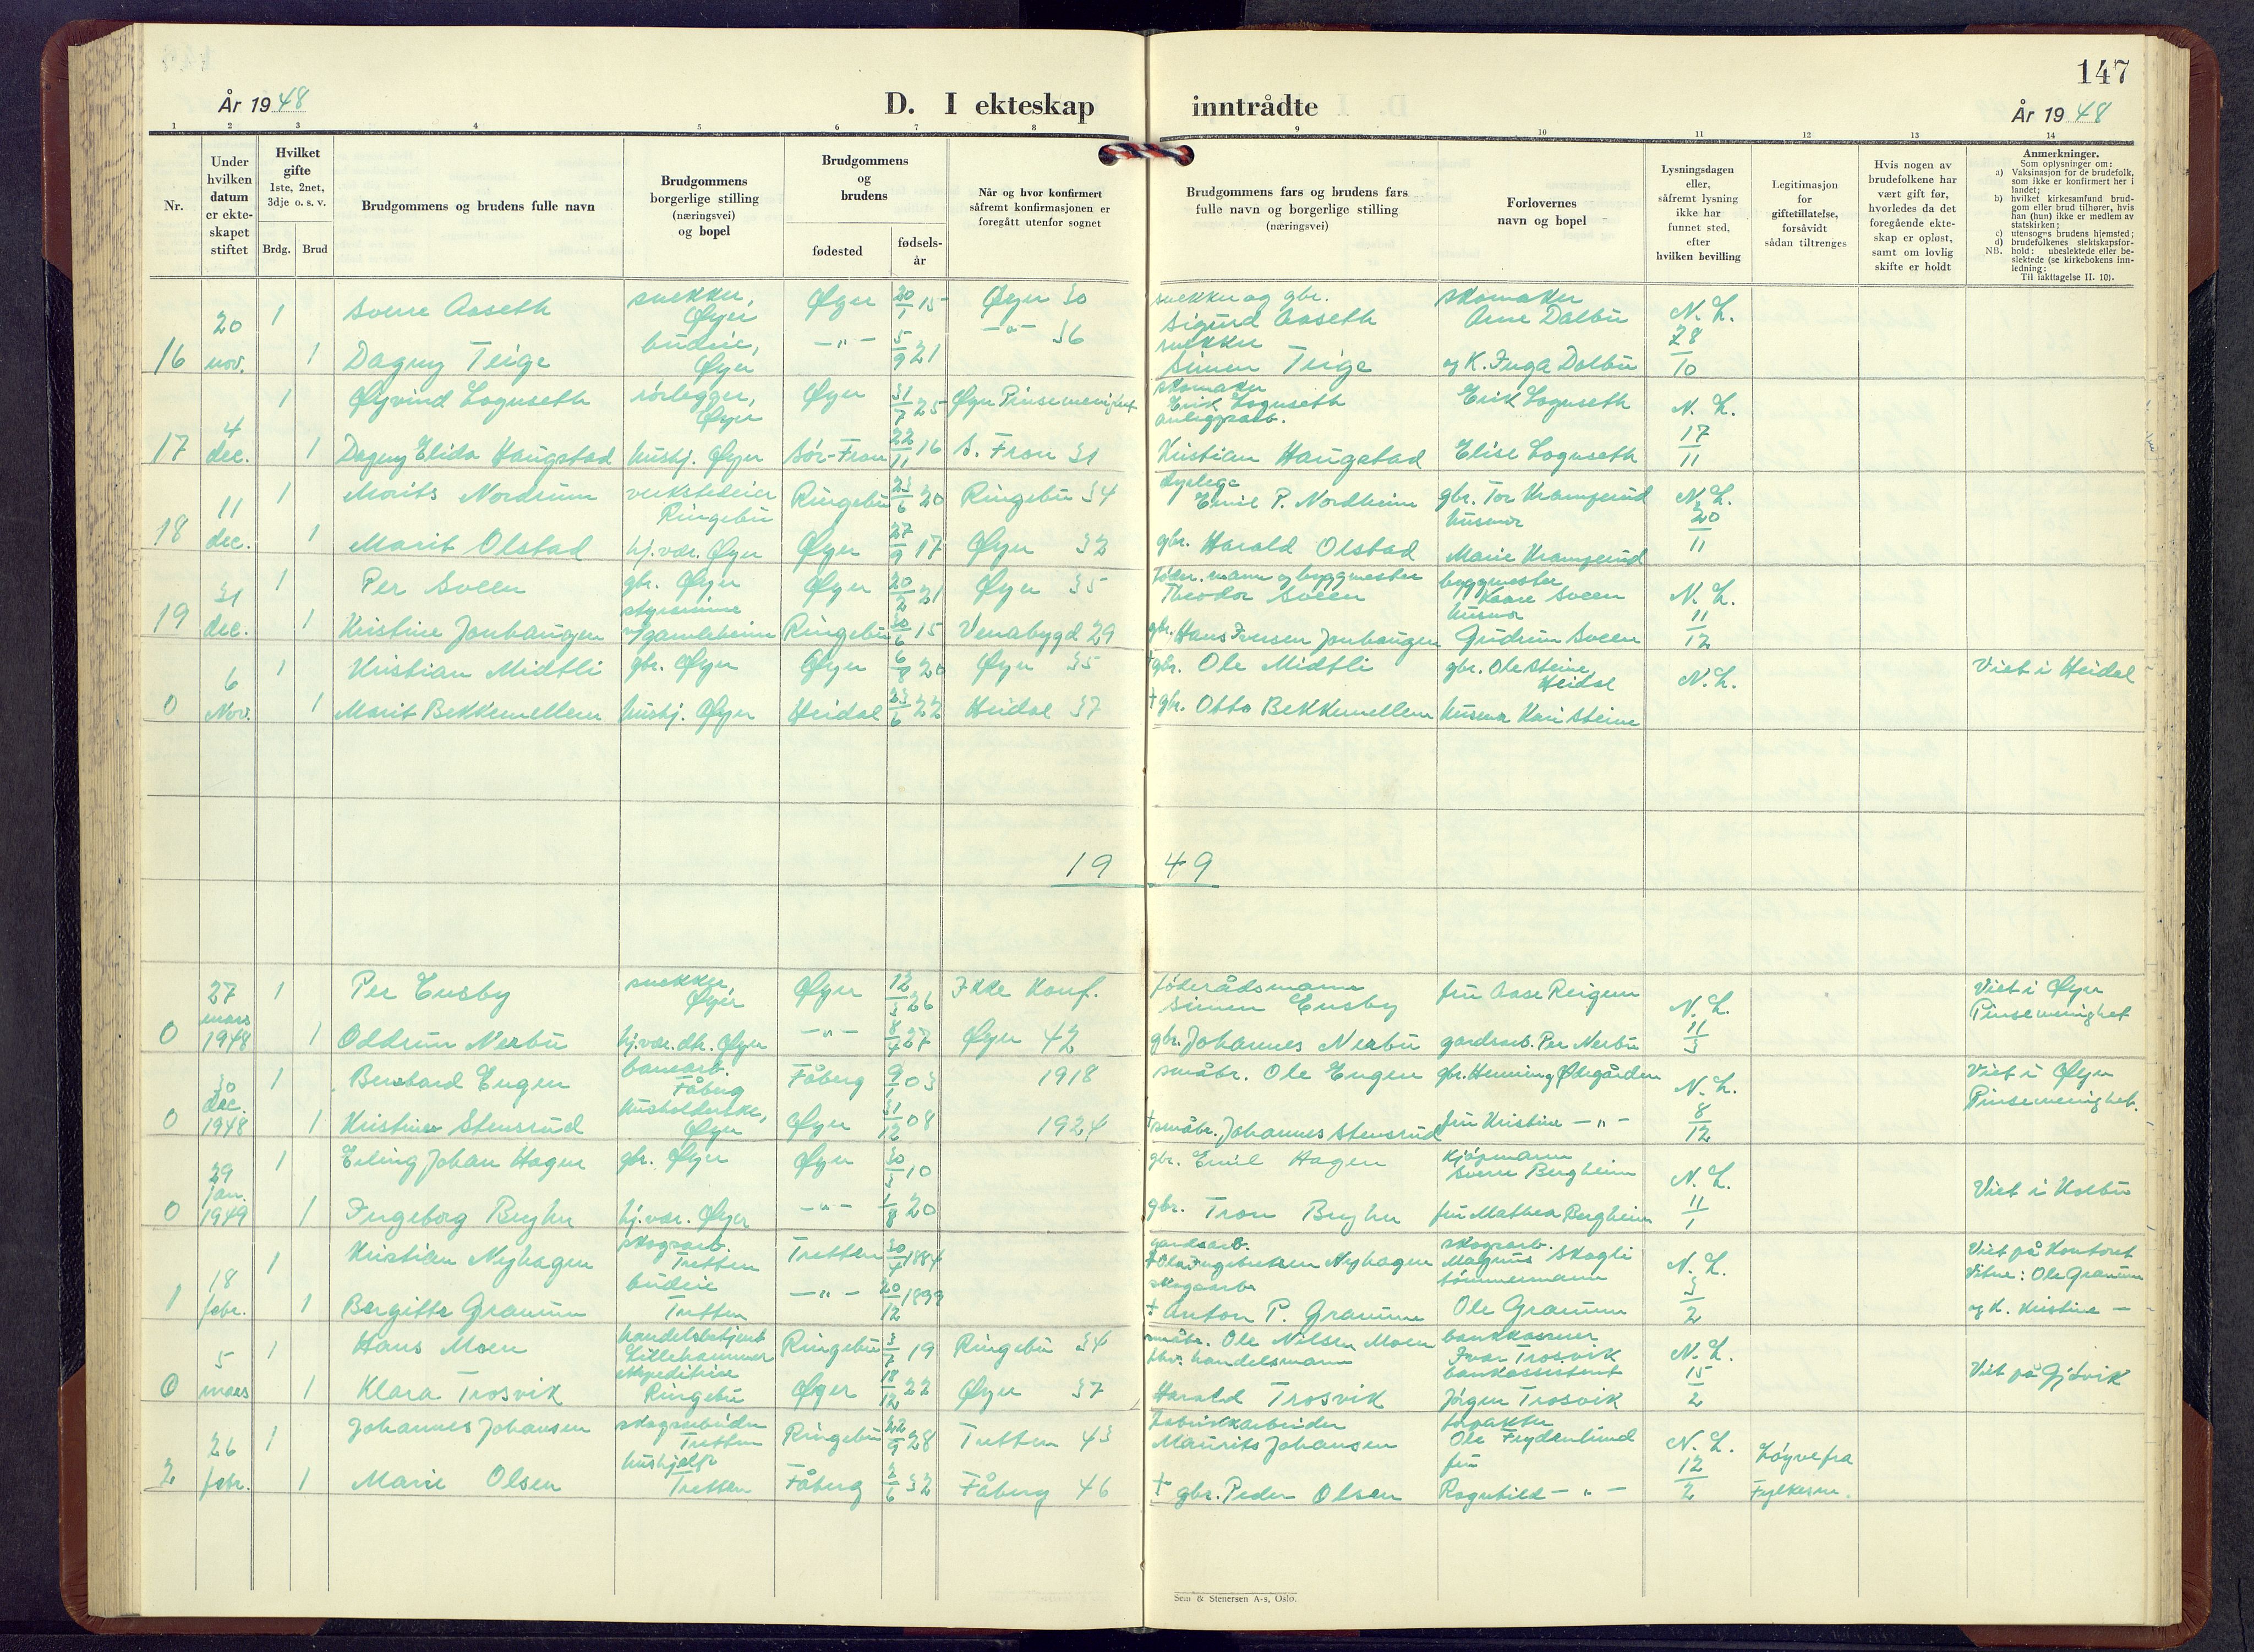 147
År 1948
D. I ekteskap inntrådte
År 1948
1 2 3 4 5 6 7 8 9 10 11 12 13 14
Nr.
Under hvilken datum er ekte-skapet stiftet
Hvilket gifte 1ste, 2net, 3dje o. s. v.
Brdg. Brud
Brudgommens og brudens fulle navn
Brudgommens borgerlige stilling (næringsvei) og bopel
Brudgommens og brudens
fødested
fødsels-år
Når og hvor konfirmert såfremt konfirmasjonen er foregått utenfor sognet
Brudgommens fars og brudens fars fulle navn og borgerlige stilling (næringsvei)
Forlovernes navn og bopel
Lysningsdagen eller, såfremt lysning ikke har funnet sted, efter hvilken bevilling
Legitimasjon for giftetillatelse, forsåvidt sådan tiltrenges
Hvis nogen av brudefolkene har vært gift før, hvorledes da det foregående ekte-skap er opløst, samt om lovlig skifte er holdt
Anmerkninger.
Som oplysninger om:
a) Vaksinasjon for de brudefolk, som ikke er konfirmert her i landet;
b) hvilket kirkesamfund brud-gom eller brud tilhører, hvis han (hun) ikke er medlem av statskirken;
c) utensogns brudens hjemsted;
d) brudefolkenes slektskapsfor-hold: ubeslektede eller be-slektede (se kirkebokens inn-ledning:
NB. Til iakttagelse II. 10).
20 1 Sverre Aaseth snekker, Øyer Øyer 20/1 15 Øyer 30 snekker og gbr. Sigurd Aaseth skomaker Arne Dalbu N. L.
16 nov. 1 Dagny Teige budeie, Øyer -"- 5/9 21 -"- 36 snekker Simen Teige og K. Inga Dalbu 28/10
4 1 Øyvind Loguseth rørlegger, Øyer Øyer 31/7 25 Øyer Pinsemenighet skomaker Erik Loguseth Erik Loguseth N. L.
17 dec. 1 Dagny Elida Haugstad hushj. Øyer Sør-Fron 22/11 16 S. Fron 31 anleggsarb. Kristian Haugstad Elise Loguseth 17/11
11 1 Morits Nordrum verkstedeier Ringebu Ringebu 23/6 20 Ringebu 34 dyrlege Emil P. Nordheim gbr. Tor Kramperud N. L.
18 dec. 1 Marit Olstad hj. vær. Øyer Øyer 27/9 17 Øyer 32 gbr. Harald Olstad husmor Marie Kramperud 20/11
31 1 Per Sveen gbr. Øyer Øyer 20/2 21 Øyer 35 føder. mann og byggmester Theodor Sveen byggmester Kaare Sveen N. L.
19 dec. 1 Kristine Jonhaugen styrerinne v/gamleheim Ringebu 30/6 15 Venabygd 29 gbr. Hans Iversen Jonhaugen husmor Gudrun Sveen 11/12
6 1 Kristian Midtli gbr. Øyer Øyer 6/8 20 Øyer 35 †gbr. Ole Midtli gbr. Ole Steine, Heidal N. L. Viet i Heidal
0 Nov. 1 Marit Bekkemellem hushj. Øyer Heidal 23/6 22 Heidal 37 †gbr. Otto Bekkemellem husmor Kari Steine
1949
27 1 Per Ensby snekker, Øyer Øyer 12/3 26 Ikke Konf. føderådsmann Simen Ensby fru Aase Reigem N. L. Viet i Øyer
0 mars 1948 1 Oddrun Nerbu hj. vær. dtr. Øyer -"- 8/4 27 Øyer 42 gbr. Johannes Nerbu gardsarb. Per Nerbu 11/3 Pinsemenighet
30 1 Bernhard Engen banearb. Fåberg Fåberg 9/1 03 1918 småbr. Ole Engen gbr. Henning Ødegården N. L. Viet i Øyer
0 dec. 1948 1 Kristine Stensrud husholderske, Øyer Øyer 31/12 08 1924 †småbr. Johannes Stensrud fru Kristine -"- 8/12 Pinsemenighet.
29 1 Erling Johan Hagen gbr. Øyer Øyer 30/3 10 gbr. Emil Hagen kjøpmann Sverre Bergheim N. L.
0 jan. 1949 1 Ingeborg Bryhn hj. vær. Øyer -"- 1/8 20 gbr. Tron Bryhn fru Mathea Bergheim 11/1 Viet i Kolbu
18 1 Kristian Nyhagen skogsarb. Tretten Tretten 30/4 1884 gardsarb. †Ola Ingebretsen Nyhagen skogsarb. Magnus Skogli N. L. Viet på Kontoret
1 febr. 1 Bergitte Gramm budeie Tretten -"- 20/12 1899 skogsarb. † Anton P. Gramm tømmermann Ole Gramm 3/2 Vitne: Ole Gramm og K. Kristine -
5 1 Hans Moen handelsbetjent Lillehammer Ringebu 3/7 19 Ringebu 34 småbr. Ole Nilsen Moen bankkasserer Ivar Trosvik N. L.
0 mars 1 Klara Trosvik ekspeditrise Ringebu Øyer 18/12 22 Øyer 37 fhv. handelsmann Harald Trosvik bankassistent Jørgen Trosvik 15/2 Viet på Gjøvik
26 1 Johannes Johansen skogsarbeider Tretten Ringebu 22/9 28 Tretten 43 fabrikkarbeider Maurits Johansen forpakter Ole Frydenlund N. L. Løyve fra
2 febr. 1 Marie Olsen hushjelp Tretten Fåberg 2/6 32 Fåberg 46 † gbr. Peder Olsen fru Ragnhild -"- 12/2 Fylkesm.
Sem & Stenersen A-s, Oslo.